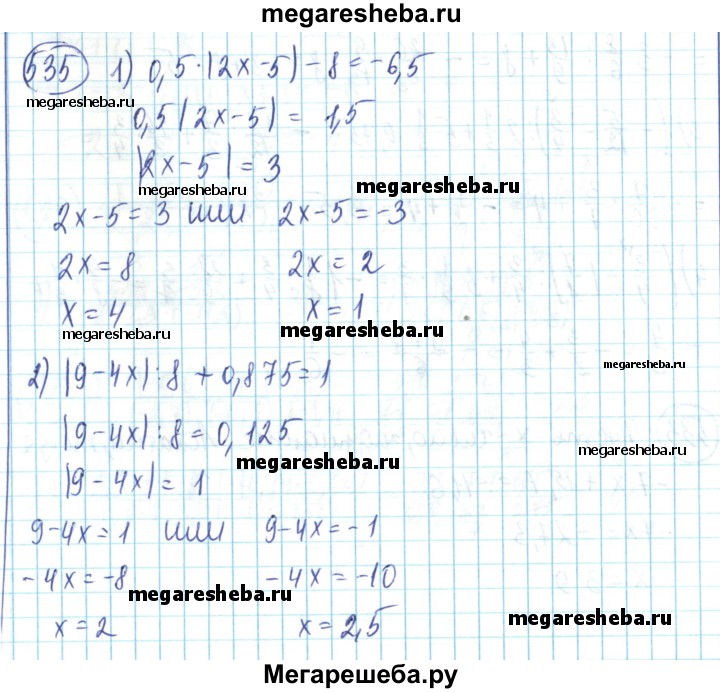 megaresheba.ru
535 1) 0,5·|2x-5|-8=-6,5
megaresheba.ru
0,5|2x-5|=1,5
|2x-5|=3
megaresheba.ru megaresheba.ru
2x-5=3 или 2x-5=-3
2x=8 2x=2
x=4 x=1
megaresheba.ru megaresheba.ru
2) |9-4x|:8+0,875=1
megaresheba.ru
|9-4x|:8=0,125
megaresheba.ru megaresheba.ru
|9-4x|=1
9-4x=1 или 9-4x=-1
-4x=-8 -4x=-10
megaresheba.ru
x=2 x=2,5
megaresheba.ru
Мегарешеба.ру